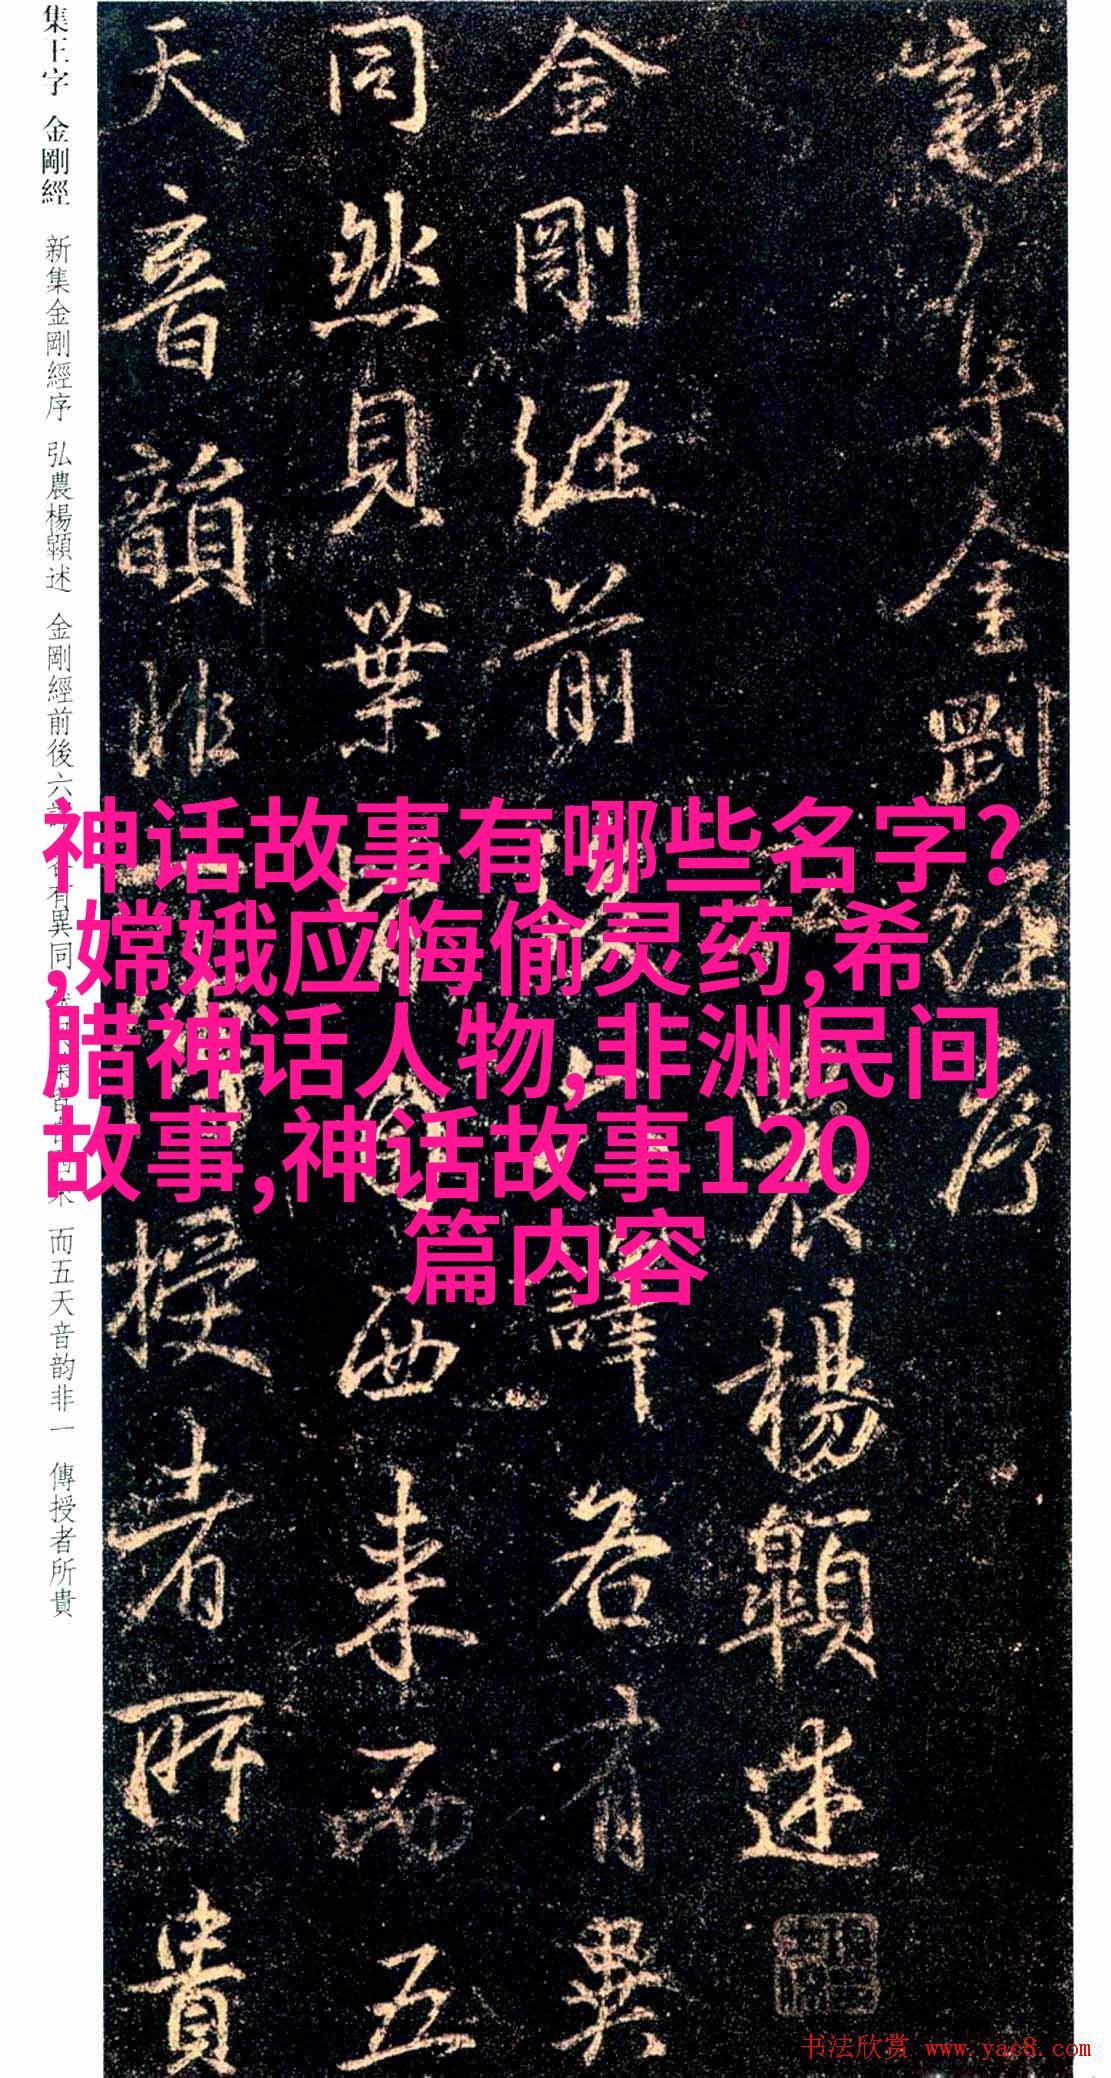 神话故事有哪些名字?
,嫦娥应悔偷灵药,希
腊神话人物,非洲民间
故事,神话故事120
篇内容
新集金剛經序
楊顗述
金剛經前
譯各有異
同然貝葉
西来而五
天音韻非
授者所貴
集王字 金剛經 新集金剛經序 弘農楊顗述 金剛經前後六 有異同 而五天音韵非一 傳授者所貴
书法欣赏 www.yac8.com